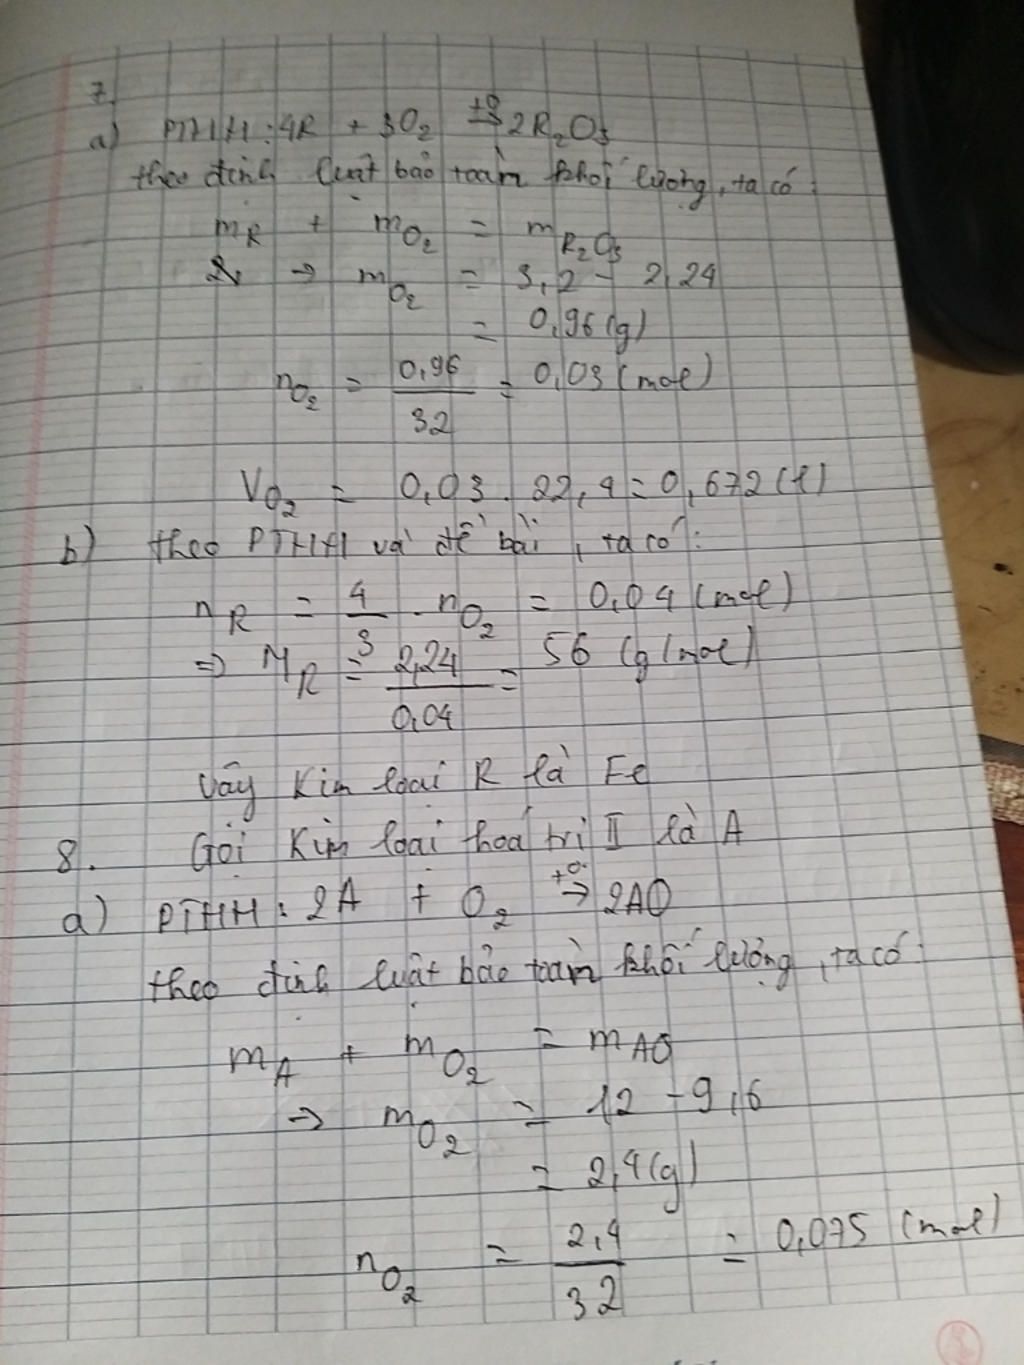 7.
a) PTHH: 4R + 3O₂ →(t°) 2R₂O₃
theo định luật bảo toàn khối lượng, ta có:
m_R + m_O₂ = m_R₂O₃
→ m_O₂ = 3,2 - 2,24
= 0,96 (g)
n_O₂ = 0,96/32 = 0,03 (mol)
V_O₂ = 0,03 . 22,4 = 0,672 (l)
b) theo PTHH và đề bài, ta có:
n_R = 4/3 . n_O₂ = 0,04 (mol)
=> M_R = 2,24/0,04 = 56 (g/mol)
Vậy Kim loại R là Fe
8. Gọi Kim loại hoá trị II là A
a) PTHH: 2A + O₂ →(t°) 2AO
theo định luật bảo toàn khối lượng, ta có:
m_A + m_O₂ = m_AO
→ m_O₂ = 12 - 9,6
= 2,4 (g)
n_O₂ = 2,4/32 = 0,075 (mol)